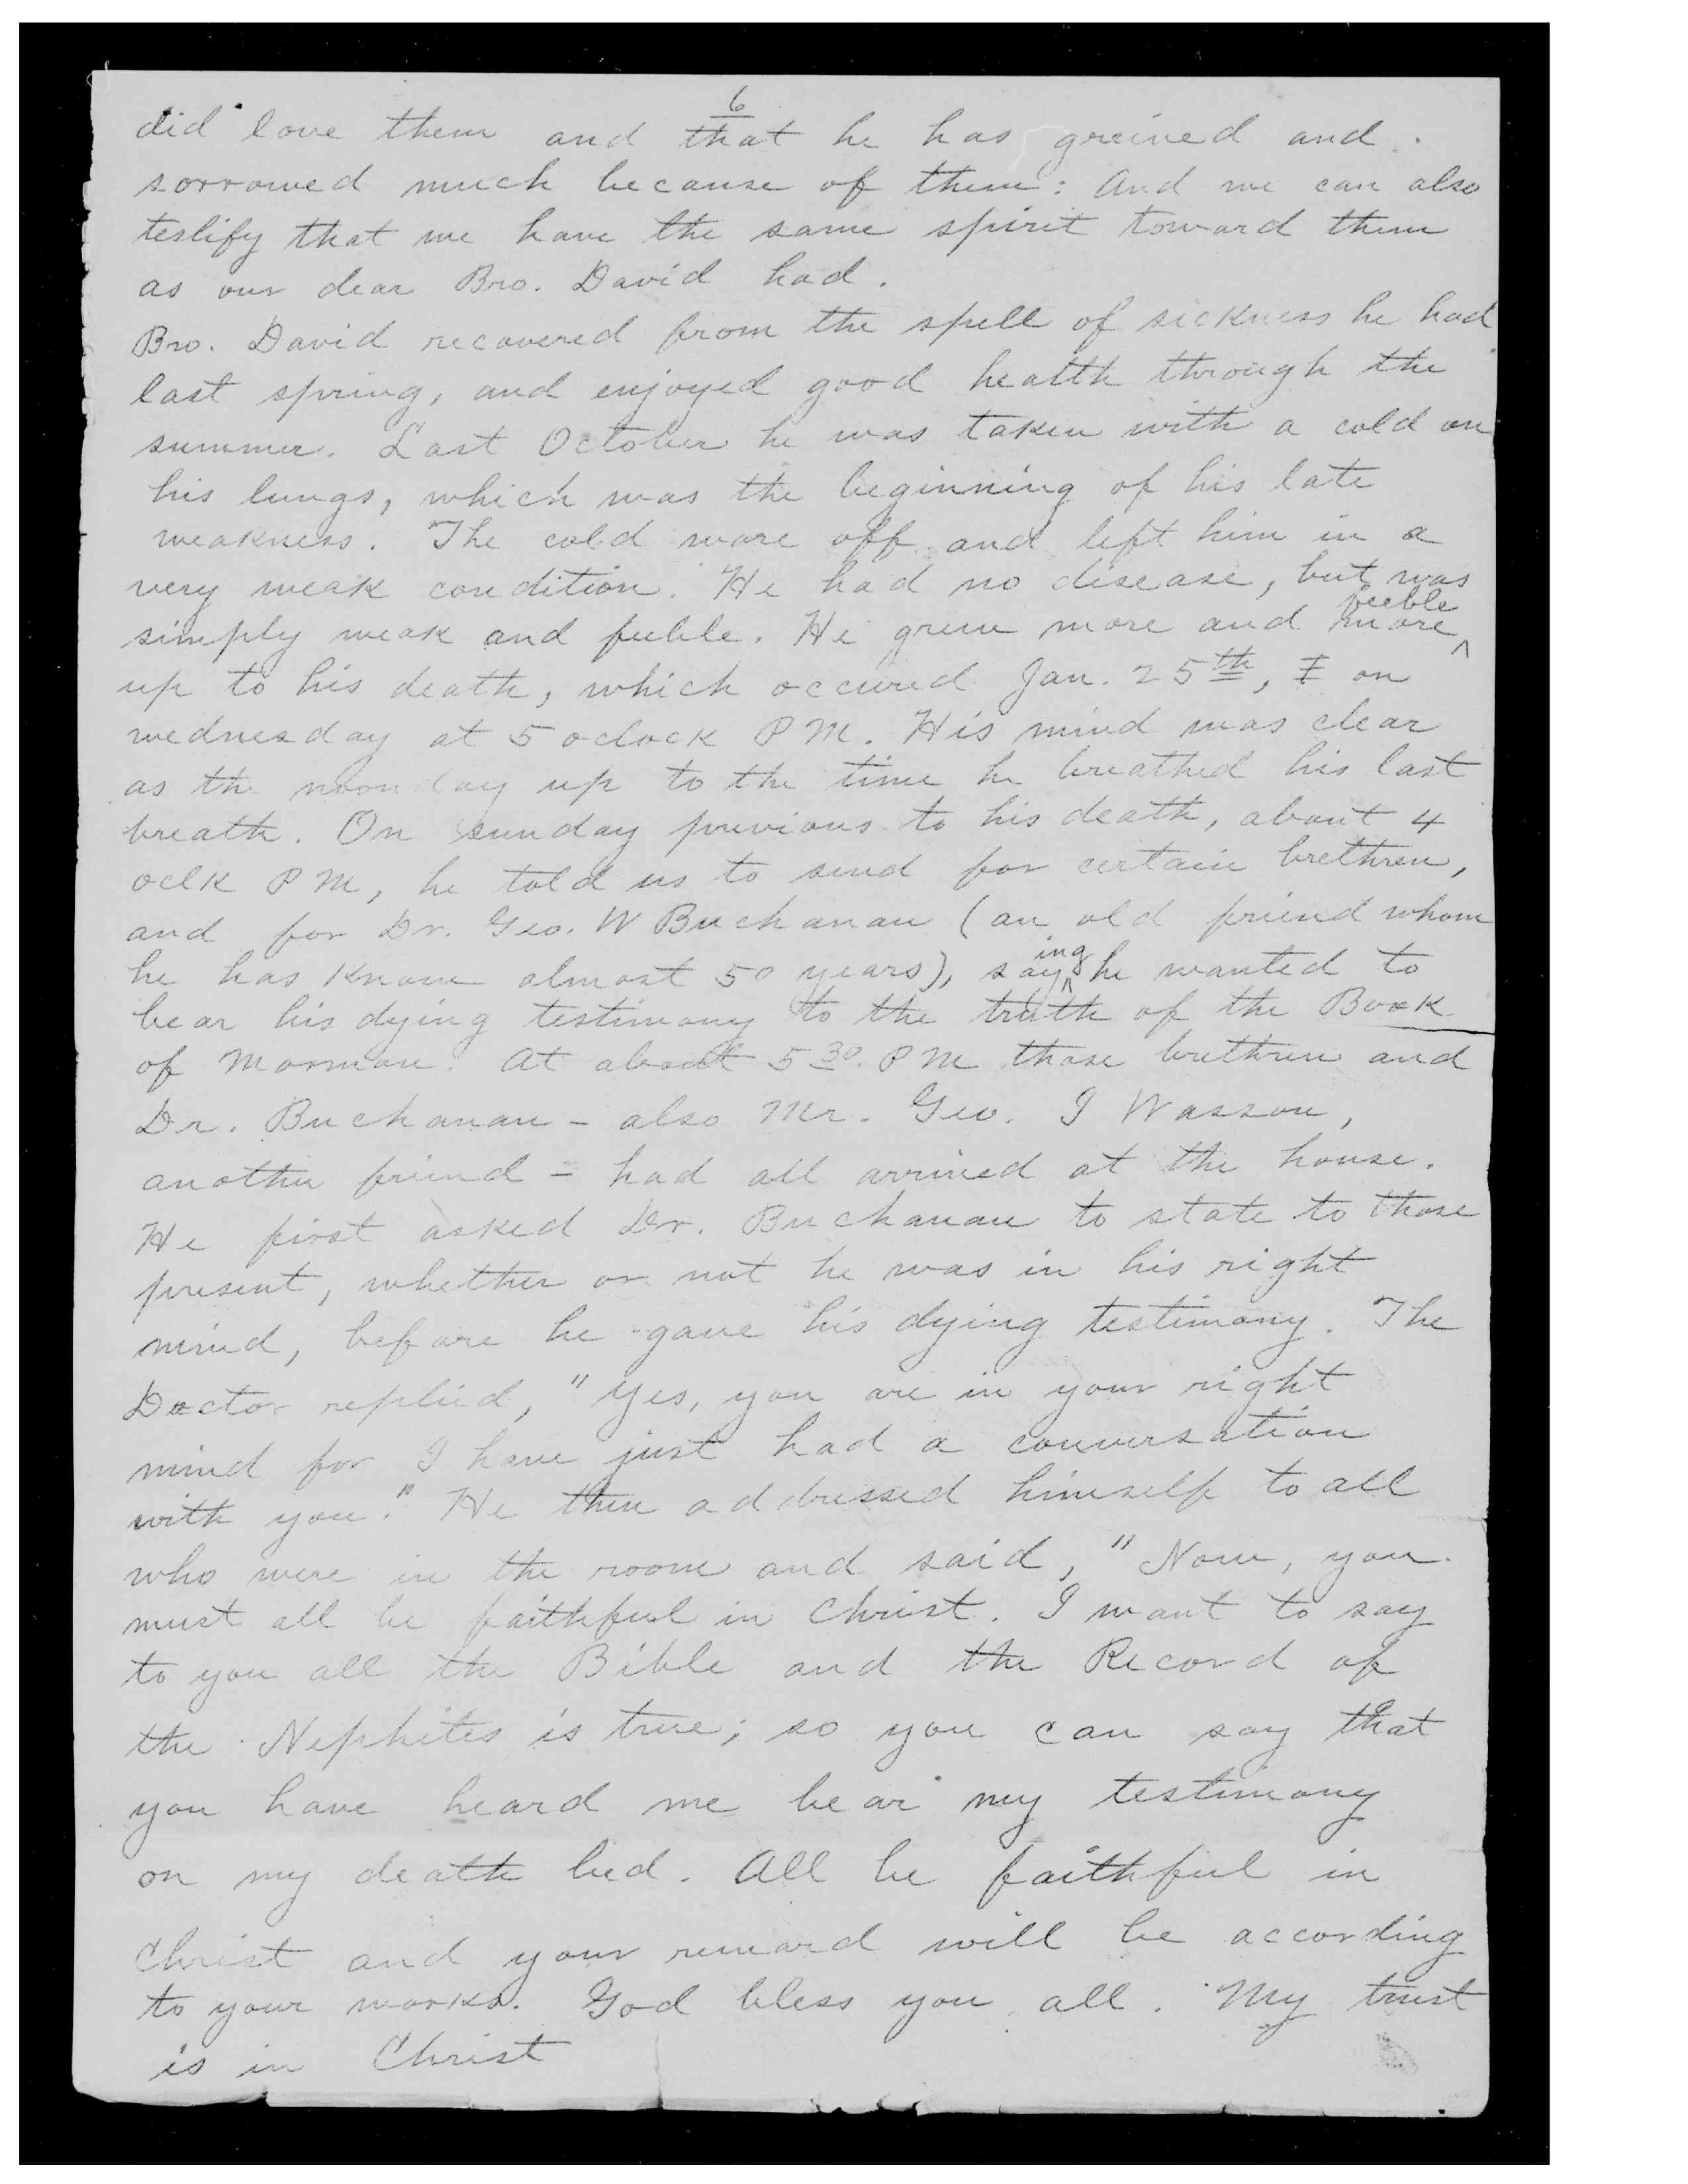 6
did love them and that he has greived and
sorrowed much because of them: And we can also
testify that we have the same spirit toward them
as our dear Bro. David had.
Bro. David recovered from the spell of sickness he had
last spring, and enjoyed good health through the
summer. Last October he was taken with a cold on
his lungs, which was the beginning of his late
weakness. The cold wore off and left him in a
very weak condition. He had no disease, but was
simply weak and feeble. He grew more and more feeble
up to his death, which occured Jan. 25th, I on
wednesday at 5 oclock PM. His mind was clear
as the noon day up to the time he breathed his last
breath. On sunday previous to his death, about 4
oclk PM, he told us to send for certain brethren,
and for Dr. Geo. W Buchanan (an old friend whom
he has known almost 50 years), saying he wanted to
bear his dying testimony to the truth of the Book
of Mormon. At about 5 30. PM those brethren and
Dr. Buchanan - also Mr. Geo. I Wasson,
another friend - had all arrived at the house.
He first asked Dr. Buchanan to state to those
present, whether or not he was in his right
mind, before he gave his dying testimony. The
Doctor replied, "Yes, you are in your right
mind for I have just had a conversation
with you." He then addressed himself to all
who were in the room and said, "Now, you
must all be faithful in Christ. I want to say
to you all the Bible and the Record of
the Nephites is true; so you can say that
you have heard me bear my testimony
on my death bed. All be faithful in
Christ and your reward will be according
to your works. God bless you all. My trust
is in Christ